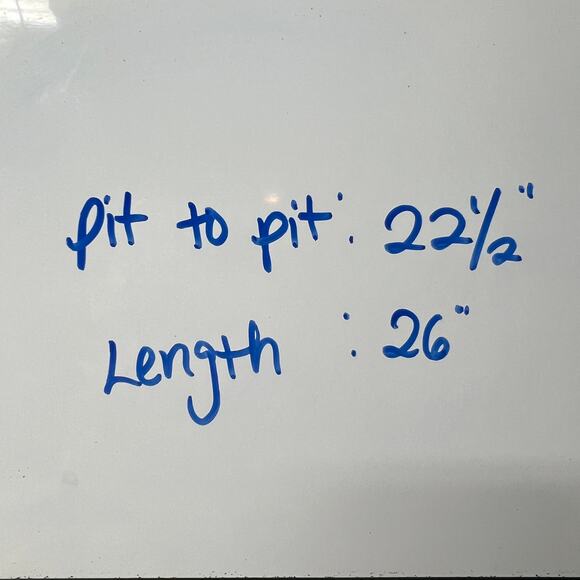 pit to pit: 22 1/2"
Length : 26"